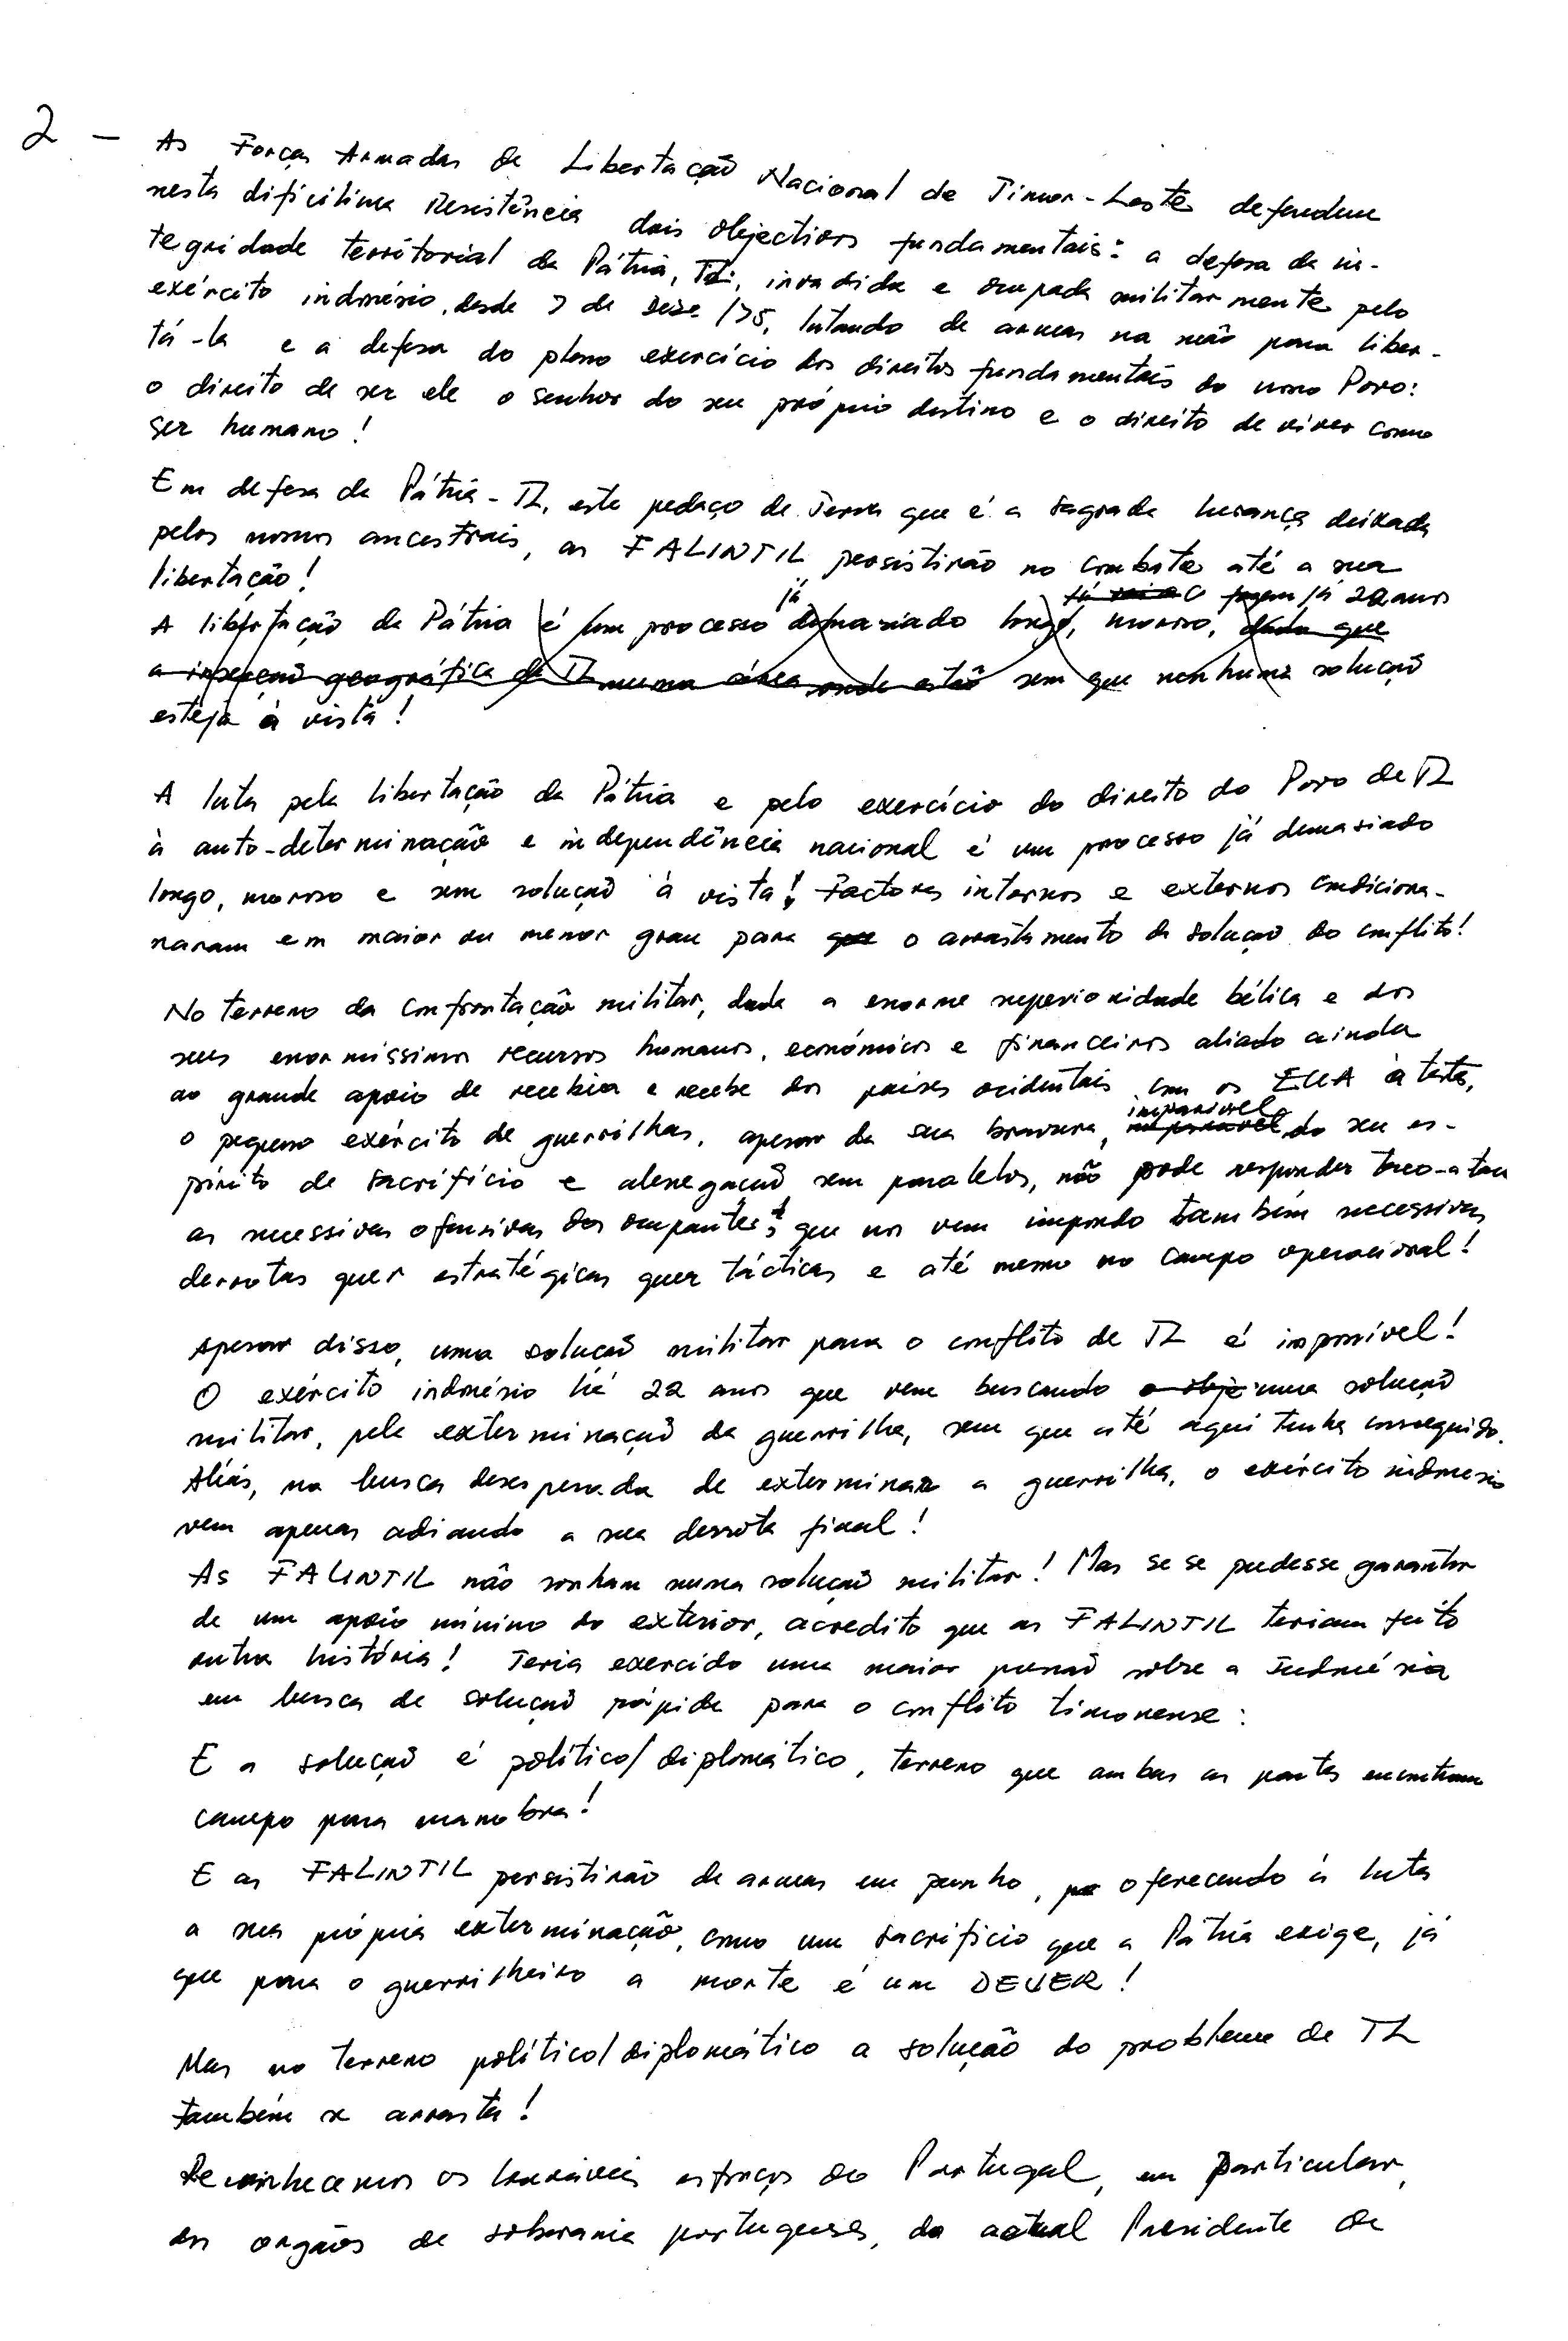 2 - As Forças Armadas de Libertação Nacional de Timor-Leste defendem
nesta dificílima Resistência dois objectivos fundamentais: a defesa da in-
tegridade territorial da Pátria, TL, invadida e ocupada militarmente pelo
exército indonésio, desde 7 de Deze /75, lutando de armas na mão para liber-
tá-la e a defesa do pleno exercício dos direitos fundamentais do nosso Povo:
o direito de ser ele o senhor do seu próprio destino e o direito de viver como
ser humano!
Em defesa da Pátria-TL, este pedaço de Terra que é a sagrada herança deixada
pelos nossos ancestrais, as FALINTIL persistirão no combate até a sua
libertação!
já há mais fazem já 22 anos
A libertação da Pátria é um processo demasiado longo, moroso, dado que
a inserção geográfica de TL numa área onde estão sem que nenhuma solução
esteja à vista!
A luta pela libertação da Pátria e pelo exercício do direito do Povo de TL
à auto-determinação e independência nacional é um processo já demasiado
longo, moroso e sem solução à vista! Factores internos e externos condiciona-
naram em maior ou menor grau para que o arrastamento da solução do conflito!
No terreno da confrontação militar, dada a enorme superioridade bélica e dos
seus enormíssimos recursos humanos, económicos e financeiros aliado ainda
ao grande apoio de recebia e recebe dos países ocidentais com os EUA à testa,
imparável
o pequeno exército de guerrilhas, apesar da sua bravura, do seu es-
pírito de sacrifício e abnegação sem paralelos, não pode responder taco-a-taco
as sucessivas ofensivas dos ocupantes, que nos vem impondo também sucessivas
derrotas quer estratégicas quer tácticas e até mesmo no campo operacional!
Apesar disso, uma solução militar para o conflito de TL é impossível!
O exército indonésio há 22 anos que vem buscando o obje uma solução
militar, pela exterminação da guerrilha, sem que até aqui tenha conseguido.
Aliás, na busca desesperada de exterminar a guerrilha, o exército indonésio
vem apenas adiando a sua derrota final!
As FALINTIL não sonham numa solução militar! Mas se se pudesse garantir
de um apoio mínimo do exterior, acredito que as FALINTIL teriam feito
outra história! Teria exercido uma maior pressão sobre a Indonésia
em busca de solução rápida para o conflito timorense:
E a solução é político/diplomático, terreno que ambas as partes encontram
campo para manobra!
E as FALINTIL persistirão de armas em punho, oferecendo à luta
a sua própria exterminação, como um sacrifício que a Pátria exige, já
que para o guerrilheiro a morte é um DEVER!
Mas no terreno político/diplomático a solução do problema de TL
também se arrasta!
Reconhecemos os louváveis esforços de Portugal, em particular,
dos orgãos de soberania portuguesa, do actual Presidente da